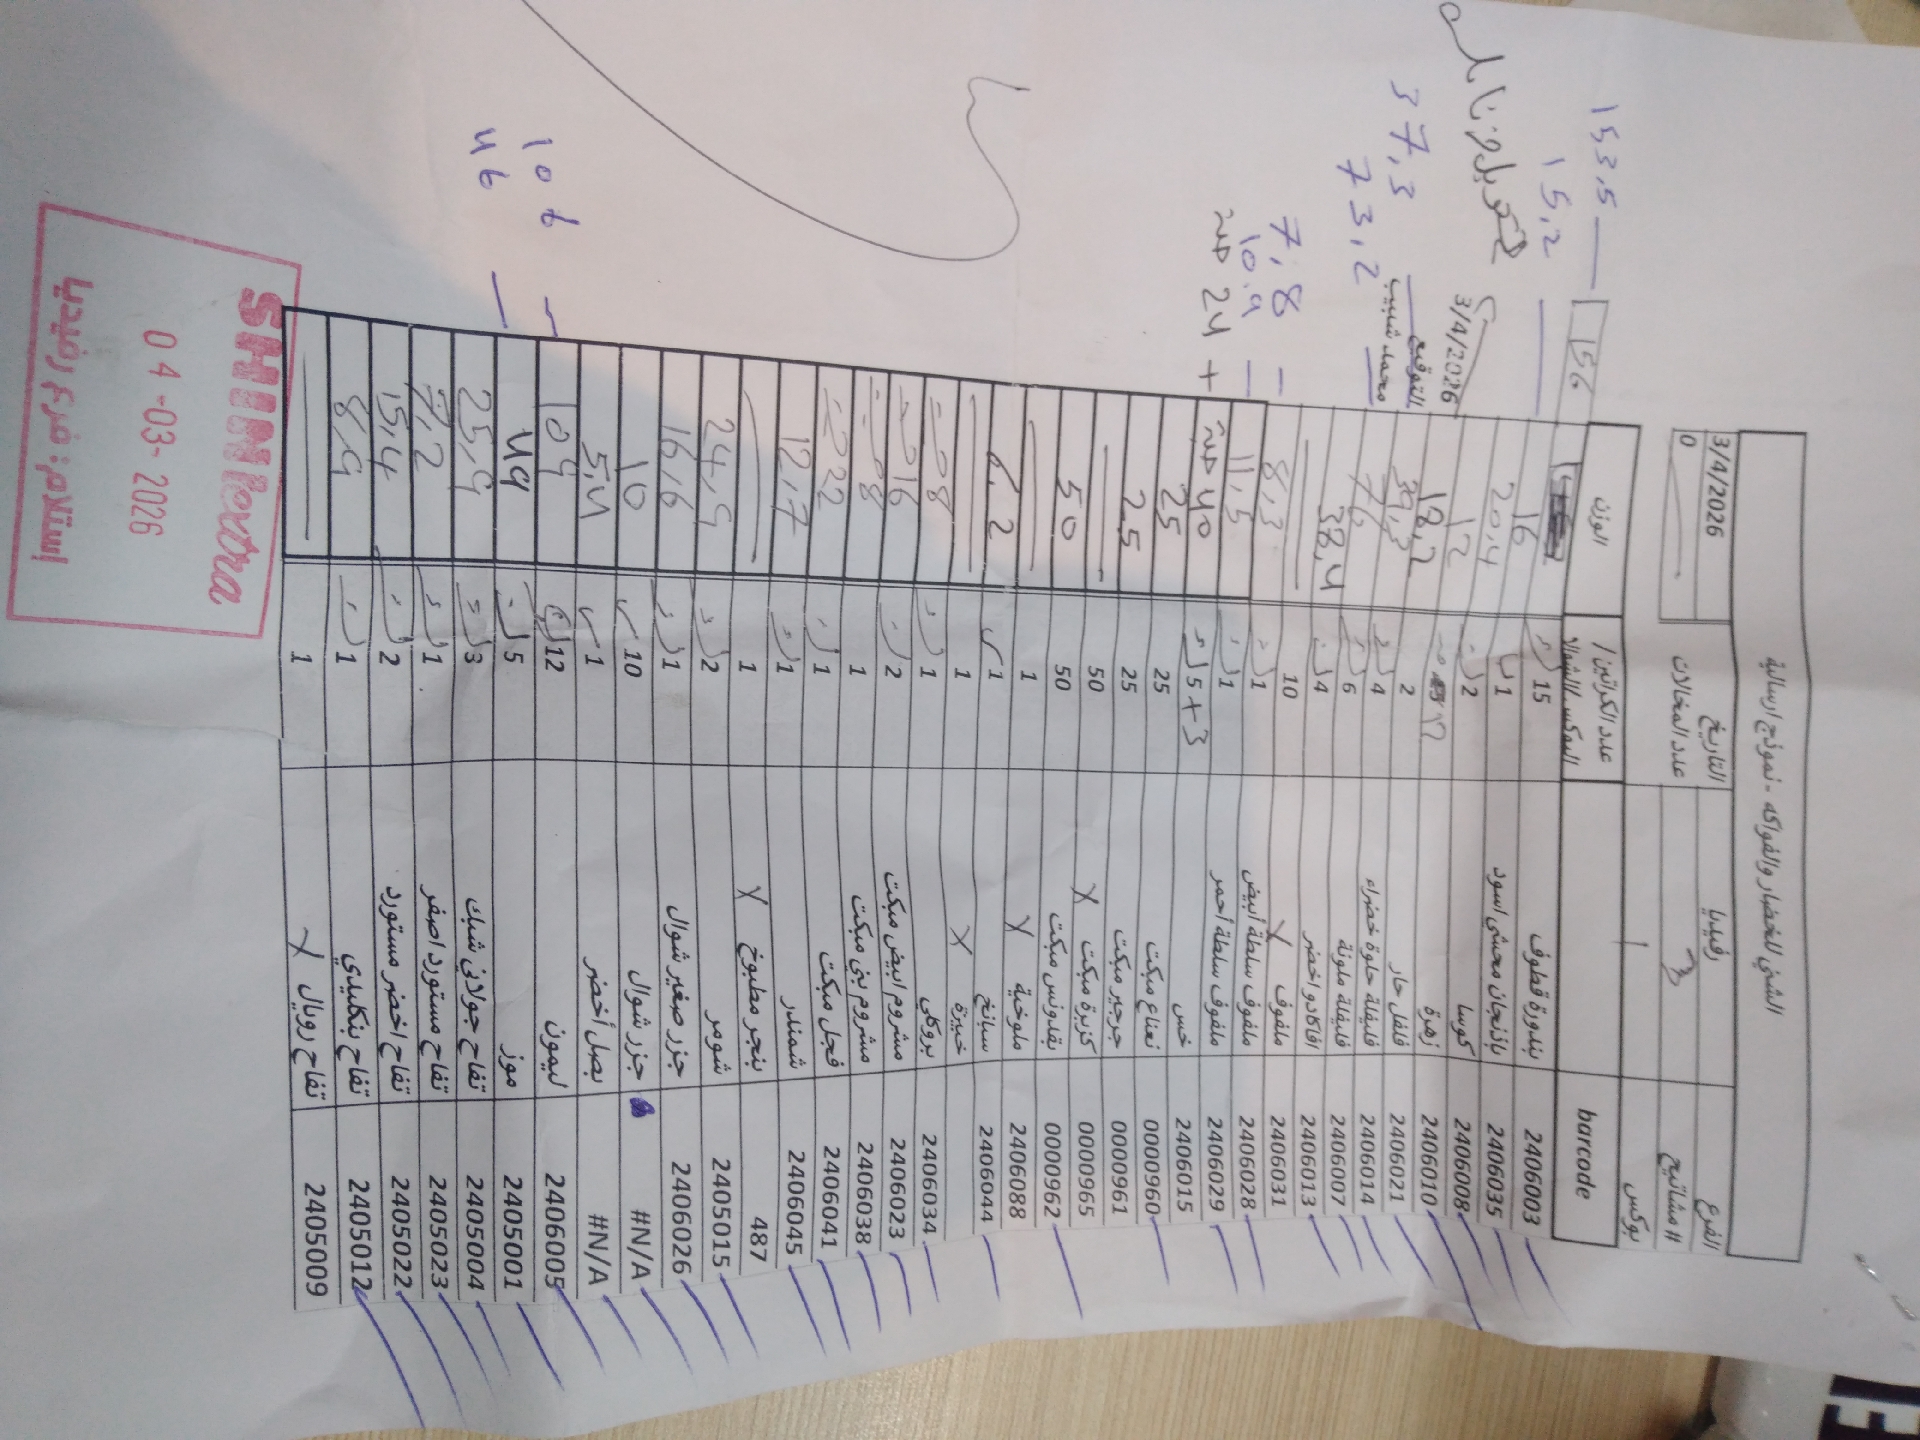 الشني للخضار والفواكه - نموذج ارسالية
الفرع رفيديا التاريخ 3/4/2026
# مشاتيح 3 عدد المخالات 0
بوكس
barcode عدد الكراتين / البوكس/الشوال الوزن
2406003 بندورة قطوف 15 156 153,5
2406035 باذنجان محشي اسود 1 16 15,2
2406008 كوسا 2 20,4
2406010 زهرة 12
2406021 فلفل حار 2 18,2
2406014 فليفلة حلوة خضراء 4 39,3 37,3
2406007 فليفلة ملونة 6 76 73,2
2406013 افاكادو اخضر 4 38,4
2406031 ملفوف X 10
2406028 ملفوف سلطة أبيض 1 8,3 7,8
2406029 ملفوف سلطة أحمر 1 11,5 10,9
2406015 خس 5+3 40 حبة 24 حبة +
0000960 نعناع مبكت 25 25
0000961 جرجير مبكت 25 25
0000965 كزبرة مبكت X 50
0000962 بقدونس مبكت 50 50
2406088 ملوخية X 1
2406044 سبانخ 1 6,2
خبيزة X 1
2406034 بروكلي 1 8
2406023 مشروم ابيض مبكت 2 16
2406038 مشروم بني مبكت 1 8
2406041 فجل مبكت 1 22
2406045 شمندر 1 12,7
487 بنجر مطبوخ X 1
2405015 شومر 2 24,9
2406026 جزر صغير شوال 1 16,6
#N/A جزر شوال 10 10
#N/A بصل أخضر 1 5,4
2406005 ليمون 12 109 106
2405001 موز 5 49 46
2405004 تفاح جولاني شبك 3 25,9
2405023 تفاح مستورد اصفر 1 7,2
2405022 تفاح اخضر مستورد 2 15,4
2405012 تفاح بنكليدي 1 8,9
2405009 تفاح رويال X 1
التوقيع
محمد شبيب
3/4/2026
SHINI extra
04-03-2026
إستلام: فرع رفيديا